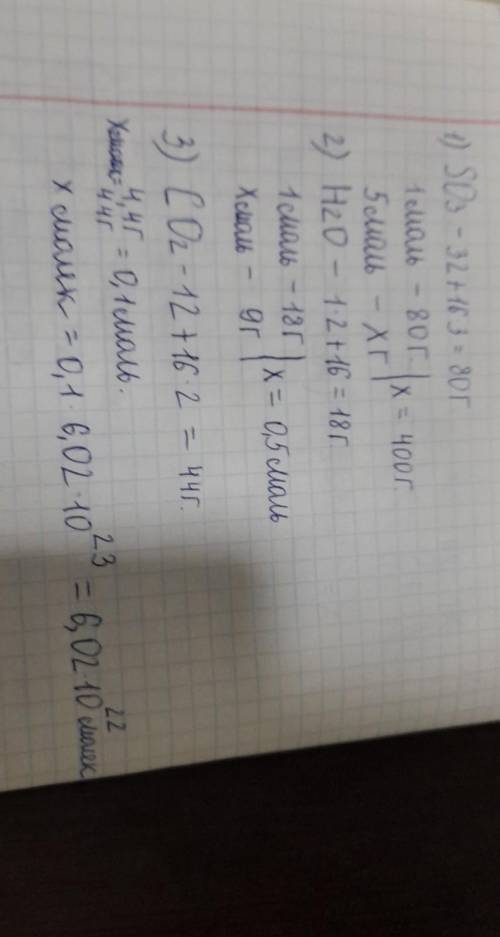 1) SO3 - 32+16·3 = 80г
1 моль - 80г | x = 400г.
5 моль - xг
2) H2O - 1·2+16 = 18г.
1 моль - 18г | x = 0,5 моль
x моль - 9г
3) CO2 - 12+16·2 = 44г.
4,4г/44г = 0,1 моль.
x молек = 0,1·6,02·10²³ = 6,02·10²² молек